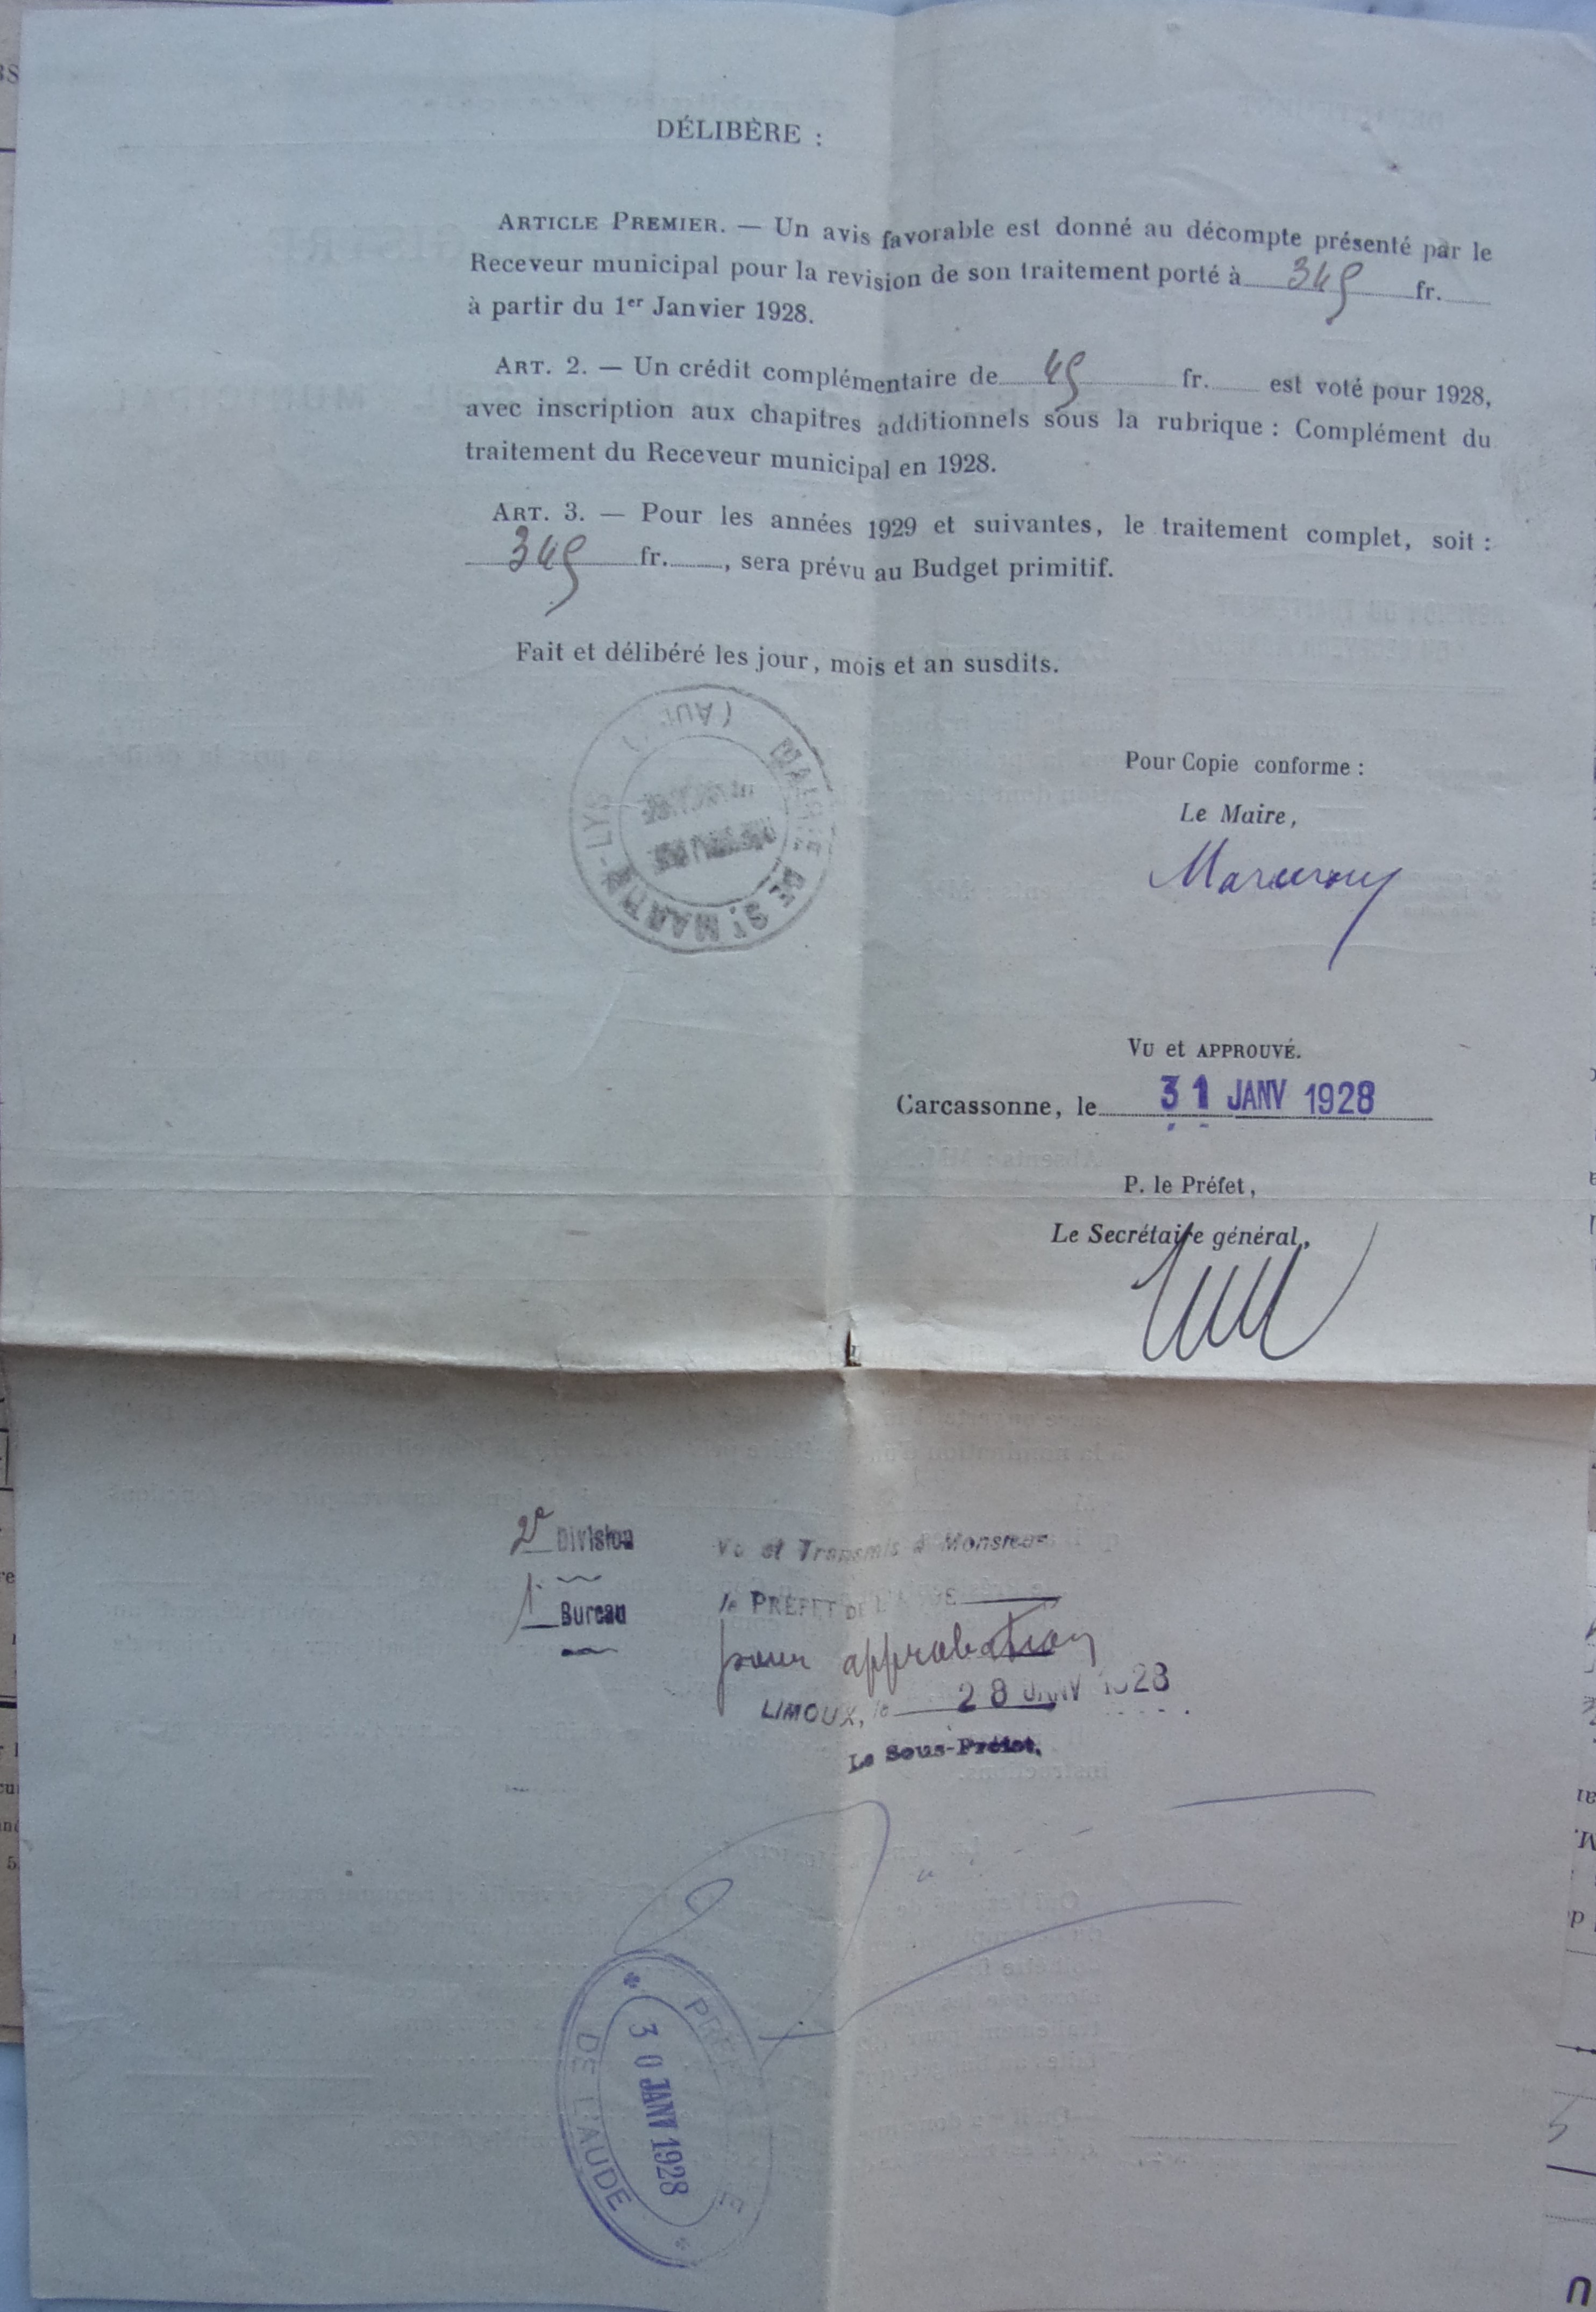 DÉLIBÈRE :
ARTICLE PREMIER. — Un avis favorable est donné au décompte présenté par le
Receveur municipal pour la revision de son traitement porté à 345 fr.
à partir du 1er Janvier 1928.
ART. 2. — Un crédit complémentaire de 45 fr. est voté pour 1928,
avec inscription aux chapitres additionnels sous la rubrique : Complément du
traitement du Receveur municipal en 1928.
ART. 3. — Pour les années 1929 et suivantes, le traitement complet, soit :
345 fr. , sera prévu au Budget primitif.
Fait et délibéré les jour, mois et an susdits.
MAIRIE DE St MARTIN-LYS
(AUDE)
Pour Copie conforme :
Le Maire,
VU et APPROUVÉ.
Carcassonne, le 31 JANV 1928
P. le Préfet,
Le Secrétaire général,
2e Division
1r Bureau
Vu et Transmis à Monsieur
le PRÉFET DE L'AUDE
pour approbation
LIMOUX, le 28 JANV 1928
Le Sous-Préfet,
PRÉFECTURE
DE L'AUDE
30 JANV 1928